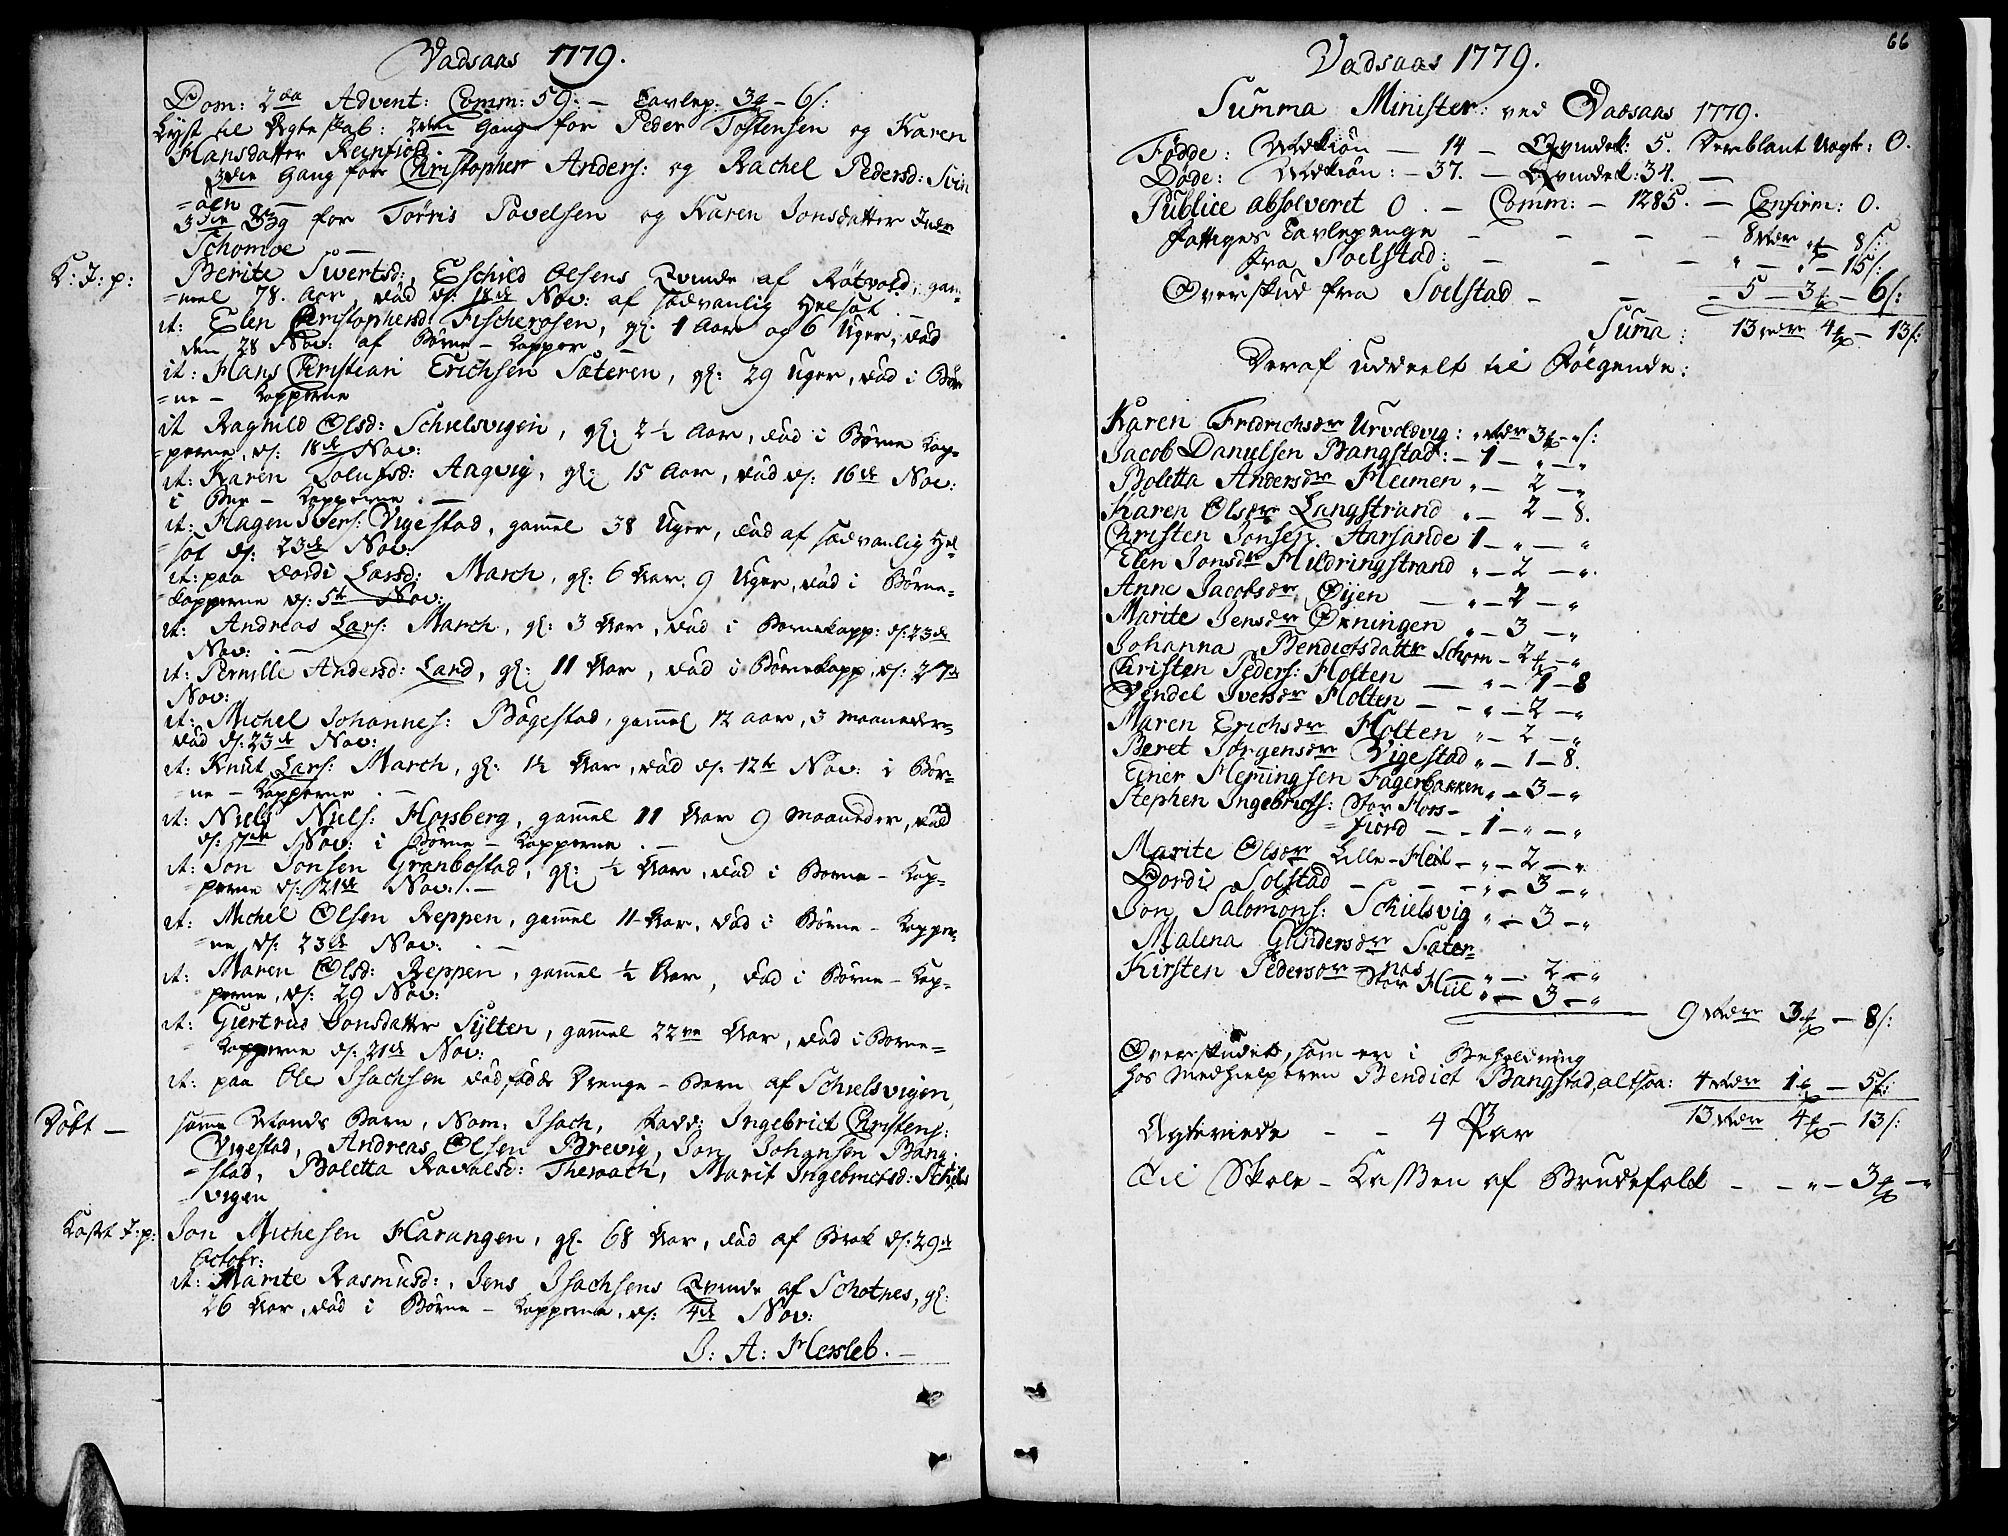 Vadsaas 1779.
Dom: 2da Advent: Comm: 59: — Tavlep: 3 — 6 s:
Lyst til Ægteskab: 2den Gang for Peder Tostensen og Karen
Hansdatter Reinfiord.
3die Gang for Christopher Anders: og Rachel Pedersd: Svin
=øen —
3die Gang for Torris Povelsen og Karen Jonsdatter Indre
Schomoe —
K: J: p: Berite Swertsd: Eschild Olsens Qvinde af Røtvold, gam-
=mel 78. Aar, død d: 18de Nov: af sædvanlig Helsot. —
it: Elen Christophersd: Fischerosen, gl: 1 Aar og 6 Uger, død
den 28 Nov: af Børne-Kopper
it: Hans Christian Erichsen Sæteren, gl: 29 Uger, død i Bør
=ne-Kopperne
it Raghild Olsd: Schielsvigen, gl: 2½ Aar, død i Børne Kop=
=perne, d: 18de Nov:
it: Karen Tolufsd: Angvig, gl: 15 Aar, død d: 16de Nov:
i Bør-Kopperne. —
it: Hagen Ivers: Vigestad, gammel 38 Uger, død af sædvanlig Hel=
=sot d: 23de Nov:
it: paa Dordi Larsd: March, gl: 6 Aar, 9 Uger, død i Børne=
=kopperne d: 5te Nov:
it: Andreas Lars: March, gl: 3 Aar, død i Børnekopp: d: 23de
Nov: . —
it: Pernille Andersd: Land, gl: 11 Aar, død i Børnekopp, d: 27de
Nov:
it: Michel Johannes: Bøgestad, gammel 12 aar, 3 Maaneder=
død d: 23de Nov:
it: Knut Lars: March, gl: 1½ Aar, død d: 12te Nov: i Bør=
=ne-Kopperne . —
it: Niels Niels: Horsberg, gammel 11 Aar 9 Maaneder, død
d: 17de Nov: i Børne-Kopperne . —
it: Jon Jonsen Granbostad, gl: ½ Aar, død i Børne-Kop=
perne d: 21de Nov: . —
it: Michel Olsen Reppen, gammel 11 Aar, død i Børne-Kopper=
=ne d: 23de Nov: . —
it: Maren Olsd: Reppen, gammel ½ Aar, død i Børne-Kop=
perne, d: 29 Nov:
it: Giertrud Jonsdatter Sylten, gammel 22 Aar, død i Børne=
=Kopperne d: 21de Nov:
it: paa Ole Isachsen dødfødde Drenge-Barn af Schielsvigen,
Døbt — samme Mands Barn, Nom: Isach, Fadd: Ingebrict Christens:
Vigestad, Andreas Olsen Brevig, Jon Johansen Bang:
=stad, Boletta Ravalsd: Theroach, Marit Ingebrictsd: Schiels
=vigen
Kastet J: p: Jon Michelsen Harangen, gl: 68 Aar, død af Brok d: 29de
Octobr:
it: Marite Rasmusd:, Jens Isachsens Qvinde af Schotnes, gl:
26 Aar, død i Børne-Kopperne, d: 4de Nov:
J: A: Hersleb. —
66
Vadsaas 1779.
Summa Minister: ved Vadsaas 1779.
Fødde: Mandkiøn — 14 — Qvindek: 5. Deriblant Uægte: 0.
Døde: Mandkiøn: — 37. — Qvindek: 34. —
Publice absolveret 0. — Comm: — 1285. — Confirm: 0.
Fattiges Tavlepenge — — — 8 rdr „ — 8 s:
fra Soelstad: — — „ — „ — 15 s:
Overskud fra Soelstad — — 5 — 3 — 6 s:
Summa: 13 rdr 4 — 13 s:
Deraf uddeelt til Følgende:
Karen Fredrichsdr Urvoldvig: „ rdr 3 — „ s:
Jacob Danielsen Bangstad: — 1 — „ — „
Boletta Andersdr Heimen „ — 2 — „
Karen Olsdr Langstrand „ — 2 — 8.
Christen Jonsen Aarsande 1 — „ — „
Elen Jonsdr Hildringstrand „ — 2 — „
Anne Jacobsdr Øyen — „ — 2 — „
Marite Jensdr Ørningen „ — 3 — „
Johanna Bendictsdatter Schom — 2 — „
Christen Peders: Holten — „ — 1 — 8
Vendel Iversdr Holten — „ — 2 — „
Maren Erichsdr Holten „ — 2 — „
Beret Jørgensdr Vigestad „ — 1 — 8.
Einer Flemingsen Fagerbakken „ — 3 — „
Stephen Ingebricts: Stor Hors-
=fiord — — 1 — „ — „
Marite Olsdr Lille-Heil — „ — 2 — „
Dordi Solstad — — „ — 3 — „
Jon Salomons: Schielsvig „ — 3 — „
Malena Gundersdr Sater=
=nas — „ — 2 — „
Kirsten Pedersdr Stor Heil „ — 3 — „
9 rdr 3 — 8 s:
Overskudet, som er i Beholdning
hos Medhielperen Bendict Bangstad, altsaa: 4 rdr 1 — 5 s:
13 rdr 4 — 13 s:
Ægteviede — — 4 Par
Til Skole-Kassen af Brudefolk — — „ — 3 — „